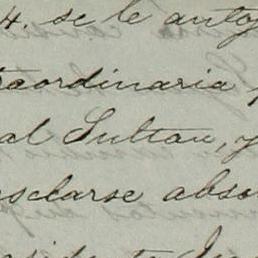 4. se le antoj
raordinaria
al Sultan, y
esclarse abso